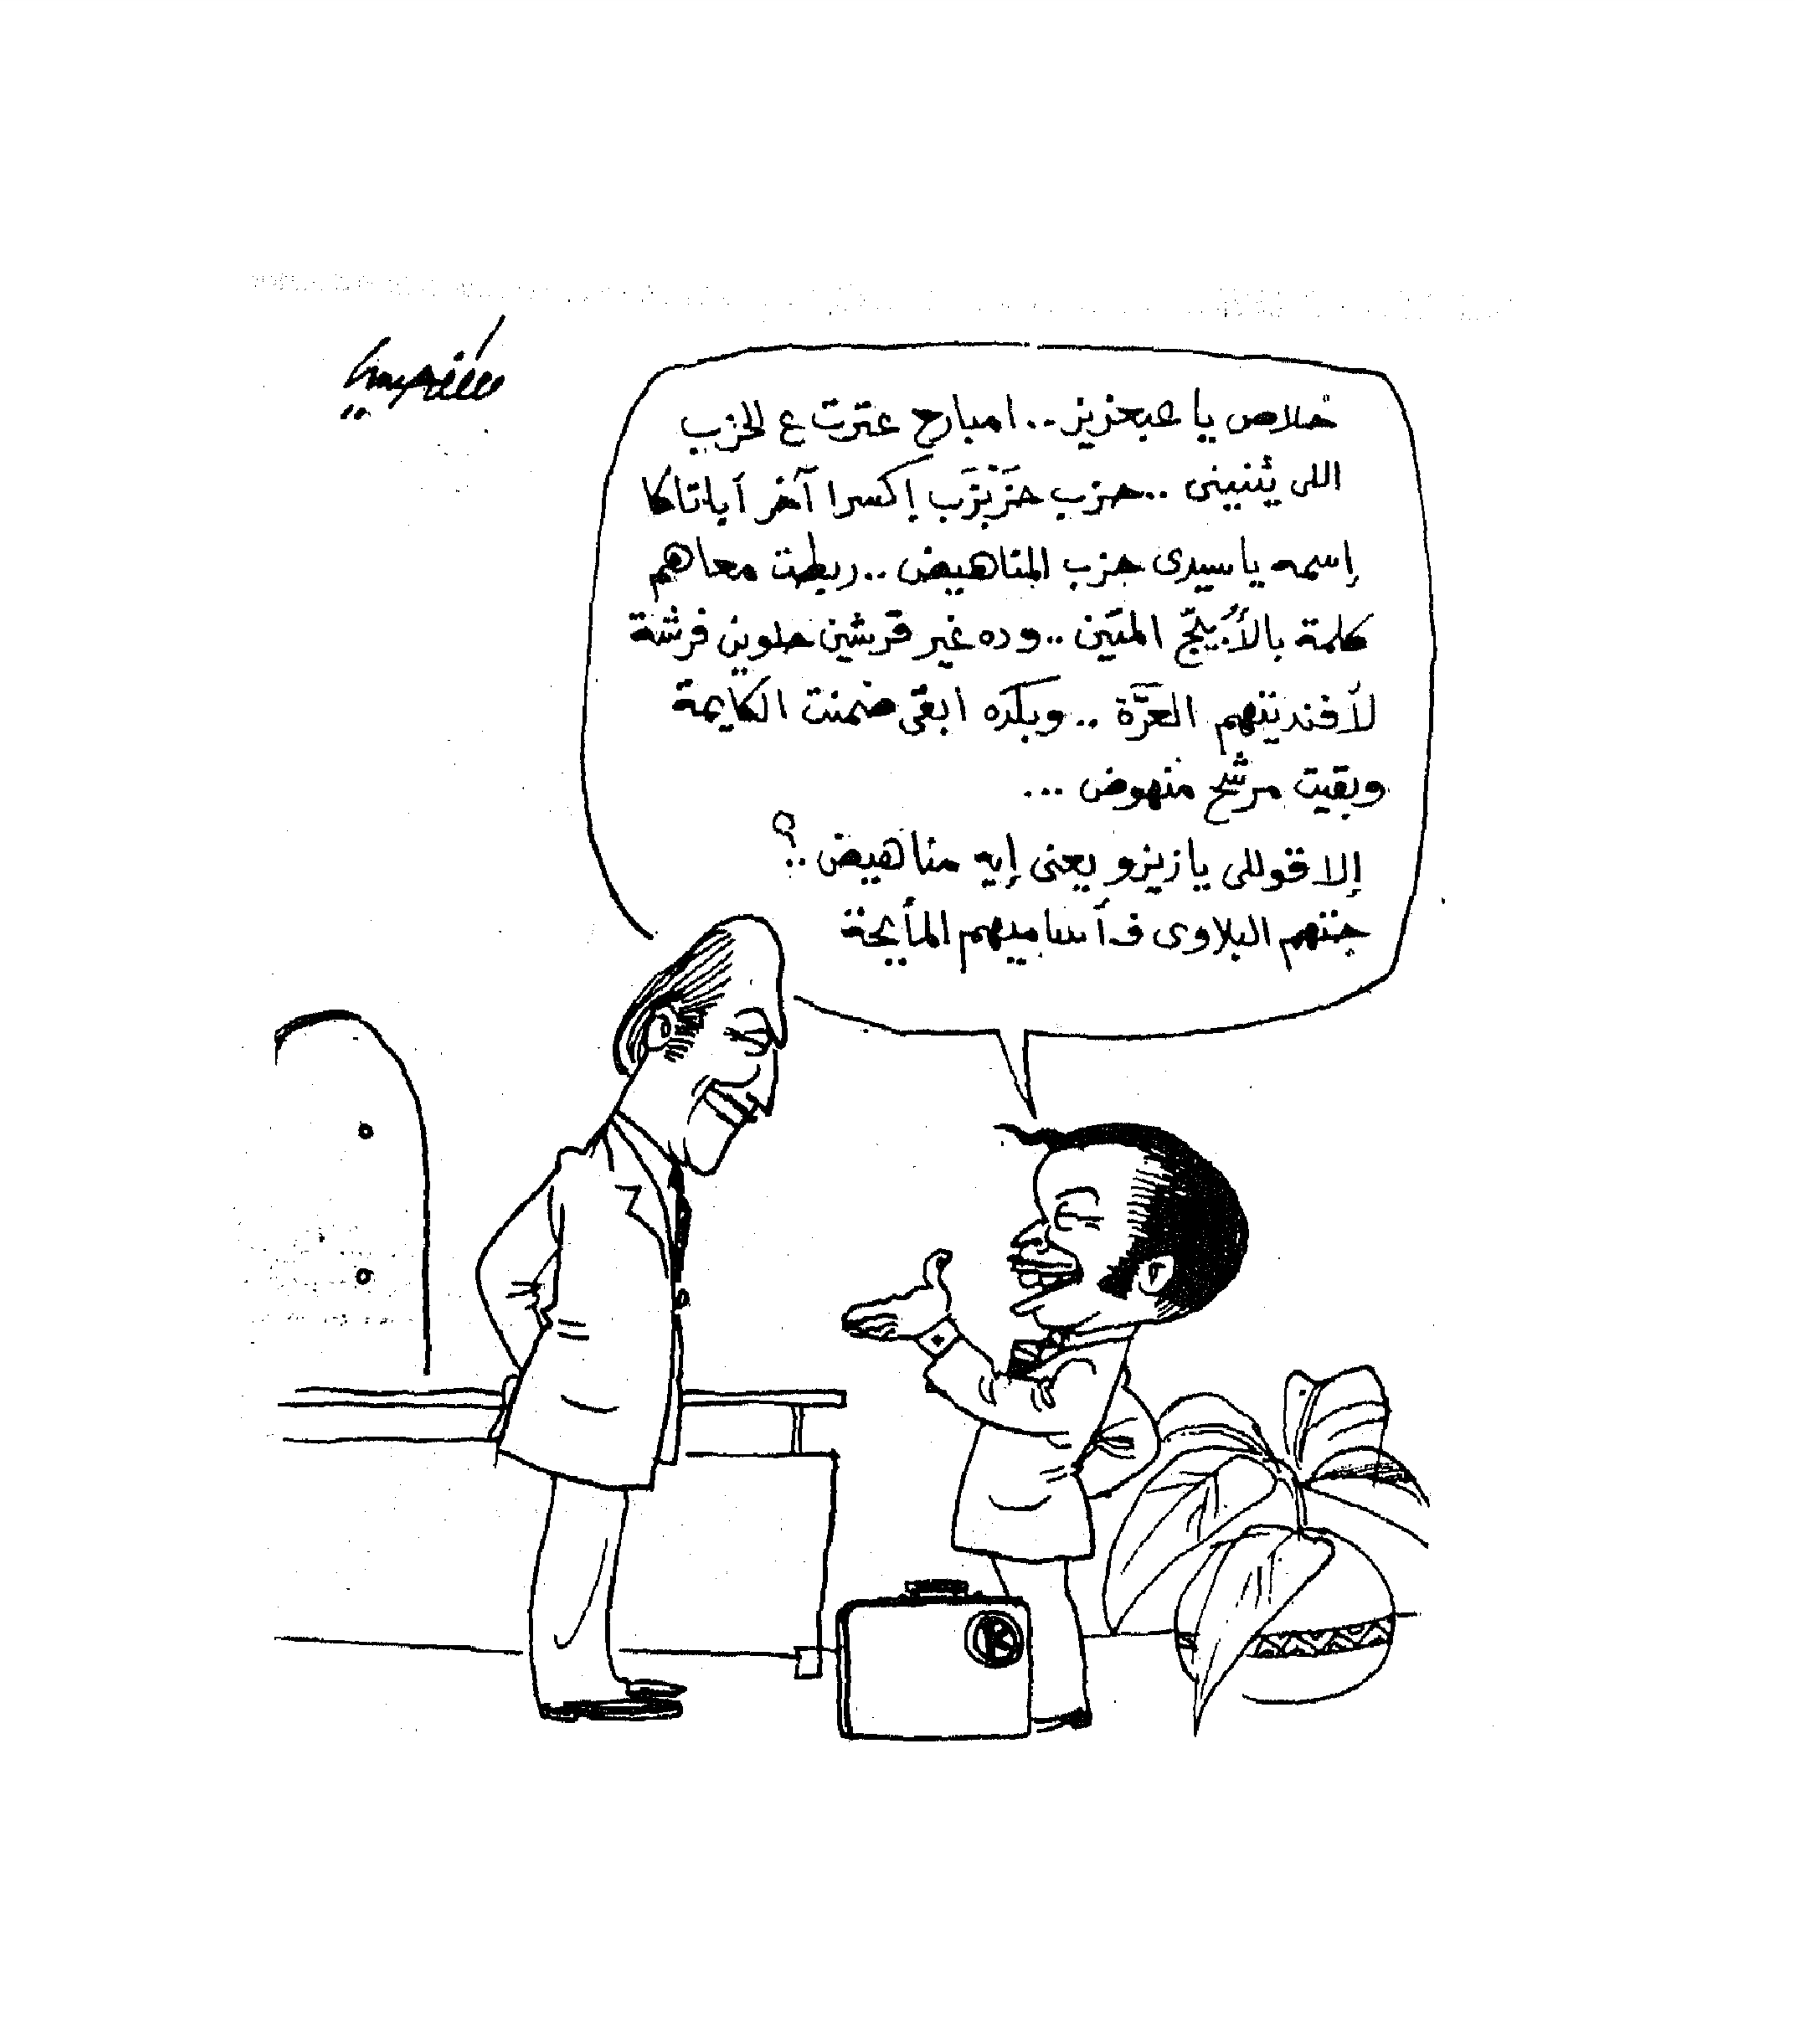 خلاص يا عبعزيز.. امبارح عترت ع الحزب
اللى يئنينى.. حزب حَزَبْزَب إكسرا آخر آبلاتاكا
إسمه يا سيدى حزب المناهيض.. ربطت معاهم
كلمة بالأُبَيّج المتين.. وده غير قرشين حلوين فرشة
لأفنديتهم العَرَّة.. وبكده ابقى ضمنت الكايمة
وبقيت مرشح منهوض...
إلا قوللى يا زيزو يعنى إيه مناهيض..؟
جتهم البلاوى ف أساميهم المأيحة